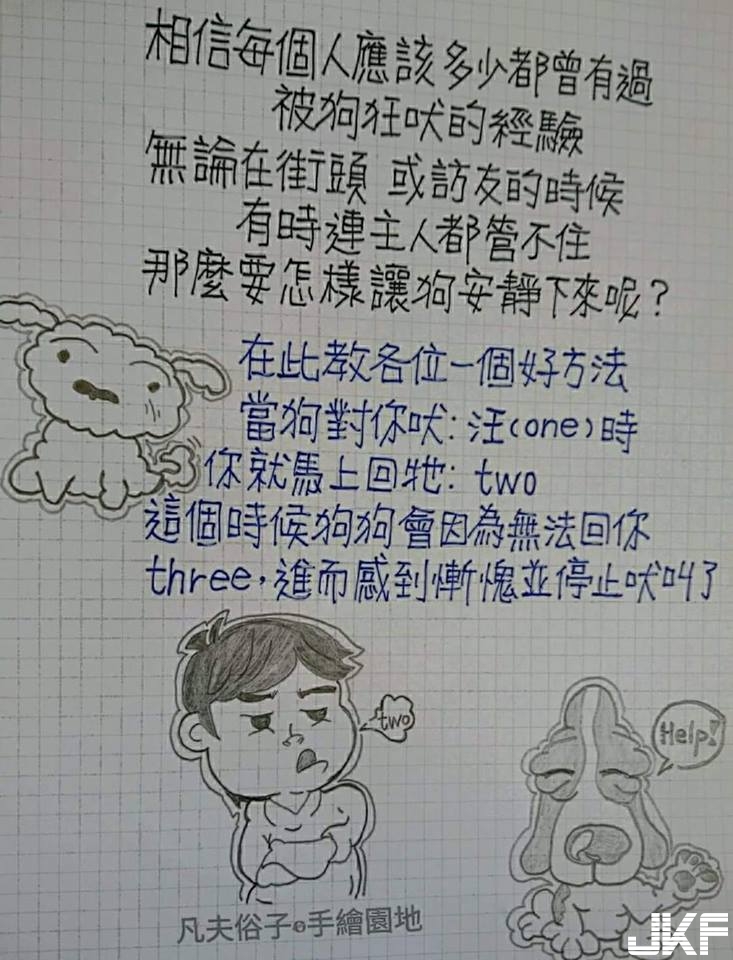 相信每個人應該多少都曾有過
被狗狂吠的經驗
無論在街頭 或訪友的時候
有時連主人都管不住
那麼要怎樣讓狗安靜下來呢?
在此教各位一個好方法
當狗對你吠:汪(one)時
你就馬上回牠: two
這個時候狗狗會因為無法回你
three,進而感到慚愧並停止吠叫了
two
Help!
凡夫俗子的手繪園地
JKF